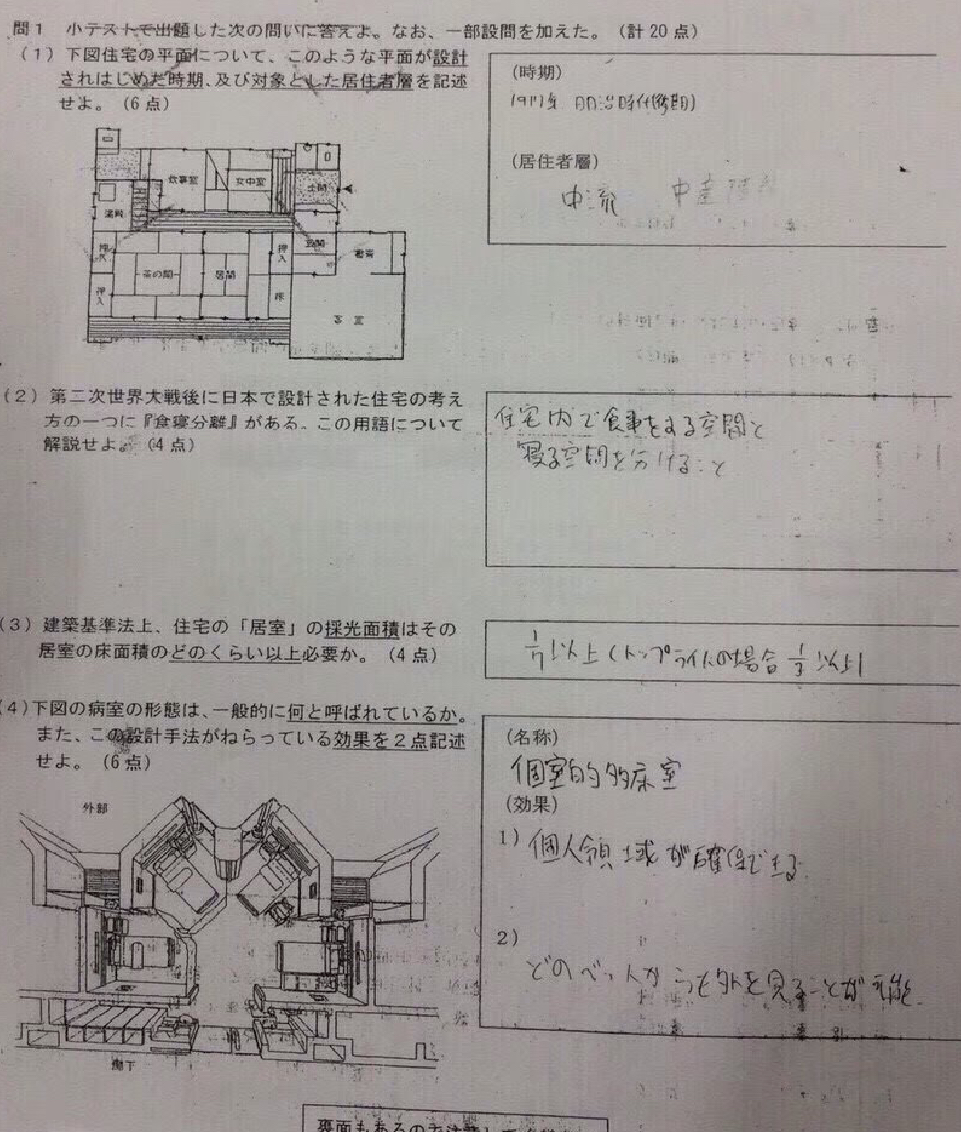 問1 小テストで出題した次の問いに答えよ。なお、一部設問を加えた。（計20点）
（1）下図住宅の平面について、このような平面が設計
されはじめた時期、及び対象とした居住者層を記述
せよ。（6点）
（時期）
明治時代(後期)
（居住者層）
中流
炊事室
女中室
土間
湯殿
押入
茶の間
居間
押入
玄関
書斎
押入
床
客室
（2）第二次世界大戦後に日本で設計された住宅の考え
方の一つに『食寝分離』がある。この用語について
解説せよ。（4点）
住宅内で食事をする空間と
寝る空間を分けること
（3）建築基準法上、住宅の「居室」の採光面積はその
居室の床面積のどのくらい以上必要か。（4点）
1/7以上（トップライトの場合 1/3以上）
（4）下図の病室の形態は、一般的に何と呼ばれているか。
また、この設計手法がねらっている効果を2点記述
せよ。（6点）
（名称）
個室的多床室
（効果）
1）個人領域が確保できる.
2）
どのベットからも外を見ることが可能.
外部
廊下
裏面もあるので注意して